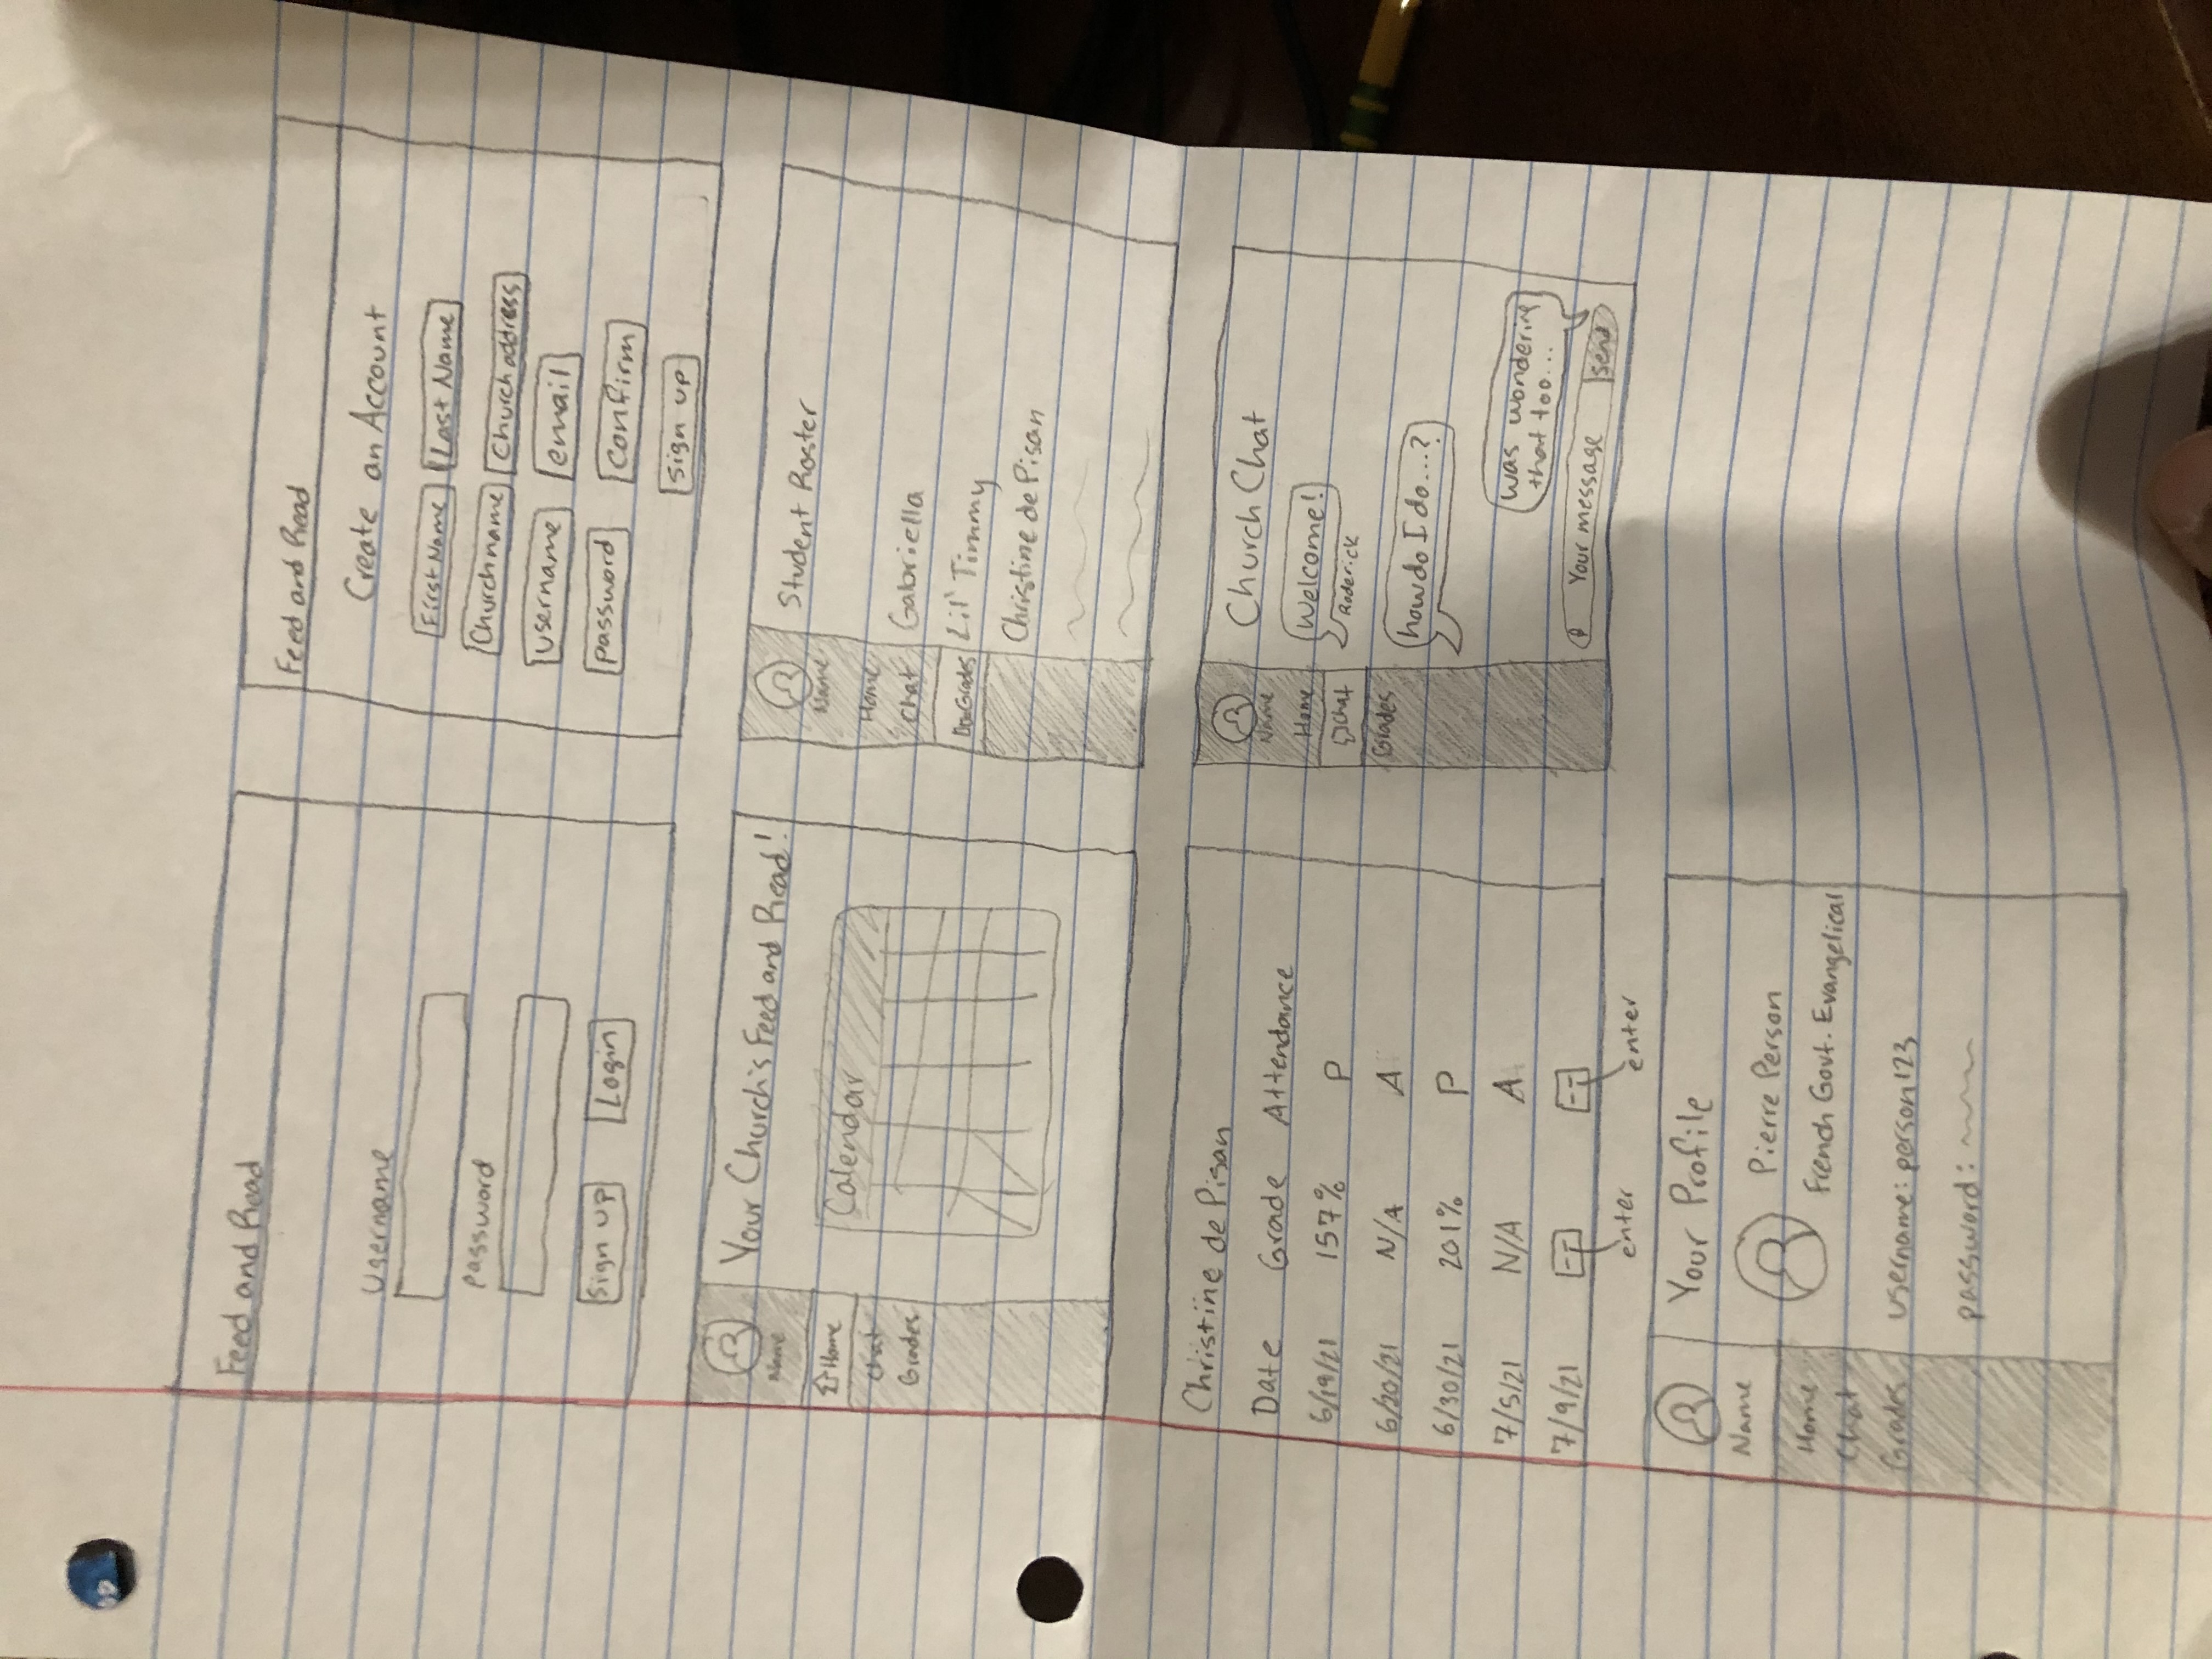 Feed and Read
username
password
Sign up Login
Feed and Read
Create an Account
First Name Last Name
Church name Church address
username email
password confirm
sign up
Name
Home
Chat
Grades
Your Church's Feed and Read!
Calendar
Name
Home
Chat
Grades
Student Roster
Gabriella
Lil' Timmy
Christine de Pisan
Christine de Pisan
Date Grade Attendance
6/19/21 157% P
6/20/21 N/A A
6/30/21 201% P
7/5/21 N/A A
7/9/21 -- --
enter enter
Name
Home
Chat
Grades
Church Chat
Welcome!
Roderick
how do I do...?
was wondering
that too...
Your message send
Name
Home
Chat
Grades
Your Profile
Pierre Person
French Govt. Evangelical
username: person123
password: